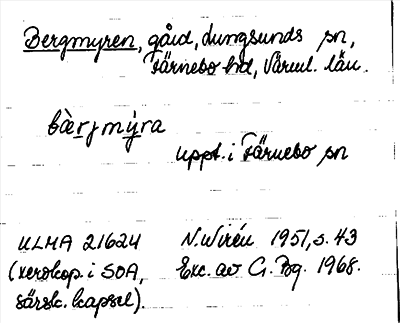 Bergmyren, gård, Lungsunds sn,
Färnebo hd, Värml. län.
bàrjmýra
uppt. i Färnebo sn
ULMA 21624 N. Wirén 1951, s. 43
(xerokop. i SOA, Exc. av G. Bg. 1968.
särsk. kapsel).